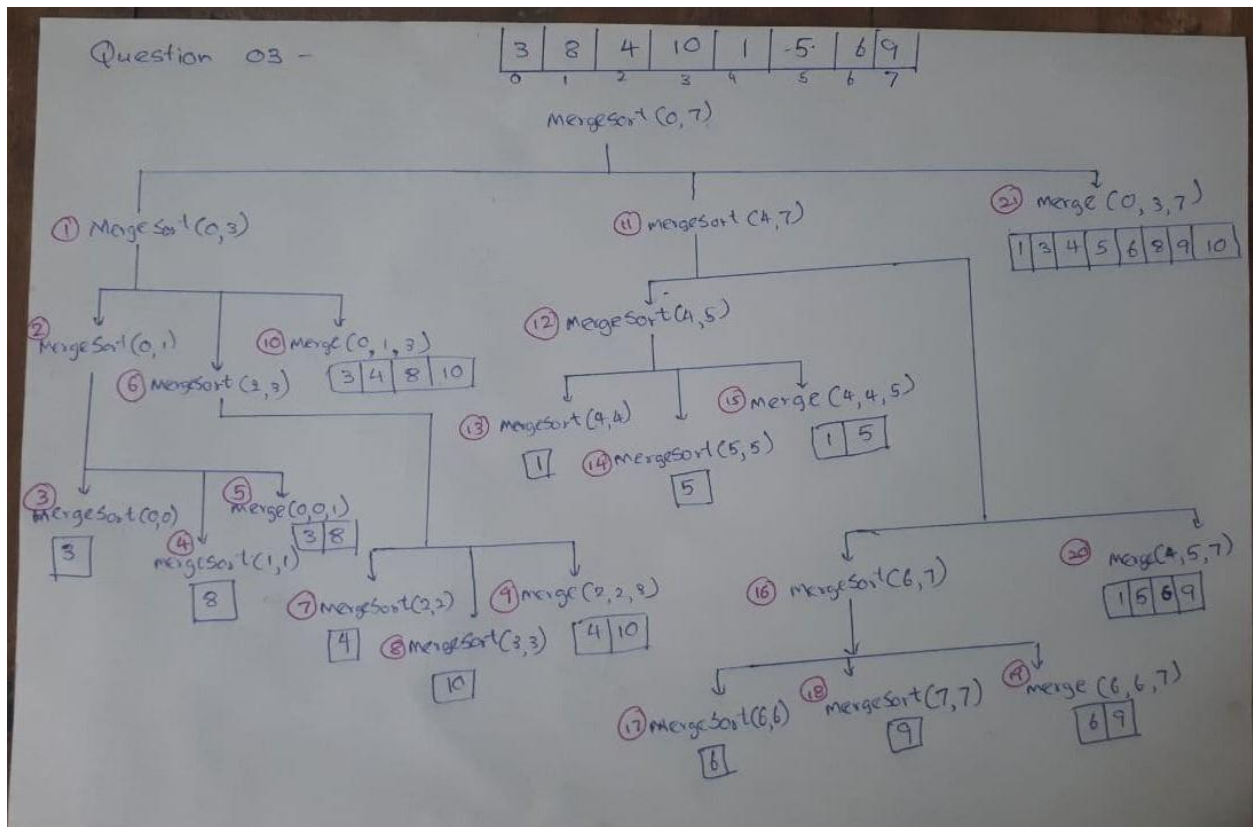 Question 03 -
3 8 4 10 1 5 6 9
0 1 2 3 4 5 6 7
mergeSort (0,7)
① MergeSort (0,3)
⑪ mergeSort (4,7)
㉑ merge (0,3,7)
1 3 4 5 6 8 9 10
② MergeSort (0,1)
⑥ MergeSort (2,3)
⑩ merge (0,1,3)
3 4 8 10
⑫ mergeSort (4,5)
⑬ mergeSort (4,4)
1
⑭ mergeSort (5,5)
5
⑮ merge (4,4,5)
1 5
③ mergeSort (0,0)
3
④ mergeSort (1,1)
8
⑤ merge (0,0,1)
3 8
⑦ mergeSort (2,2)
4
⑧ mergeSort (3,3)
10
⑨ merge (2,2,3)
4 10
⑯ mergeSort (6,7)
⑳ merge (4,5,7)
1 5 6 9
⑰ mergeSort (6,6)
6
⑱ mergeSort (7,7)
9
⑲ merge (6,6,7)
6 9